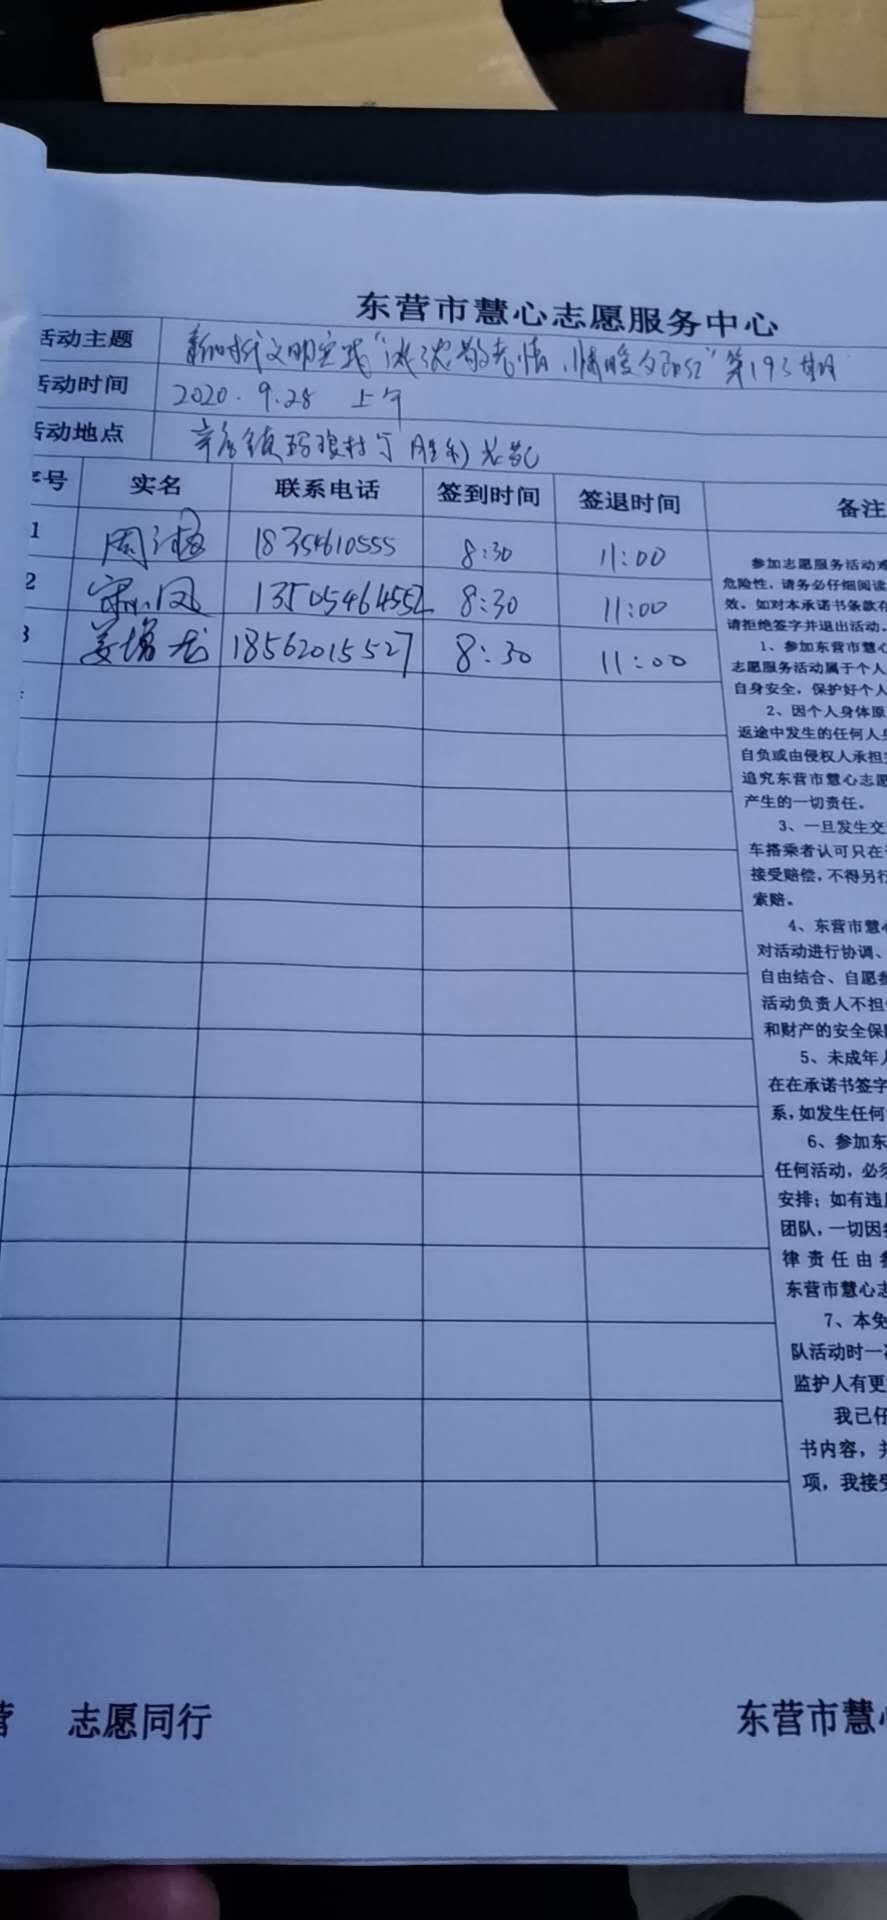 东营市慧心志愿服务中心
活动主题 新时代文明实践"浓浓敬老情,情暖夕阳红"第193期
活动时间 2020.9.28 上午
活动地点
序号 实名 联系电话 签到时间 签退时间 备注
1 周 18354610555 8:30 11:00
2 13505464552 8:30 11:00
3 姜增龙 18562015527 8:30 11:00
参加志愿服务活动难
危险性,请务必仔细阅读
效。如对本承诺书条款在
请拒绝签字并退出活动。
1、参加东营市慧心
志愿服务活动属于个人
自身安全,保护好个人
2、因个人身体原
返途中发生的任何人身
自负或由侵权人承担
追究东营市慧心志愿
产生的一切责任。
3、一旦发生交
车搭乘者认可只在
接受赔偿,不得另行
索赔。
4、东营市慧心
对活动进行协调、
自由结合、自愿参
活动负责人不担
和财产的安全保
5、未成年人
在在承诺书签字
系,如发生任何
6、参加东
任何活动,必须
安排;如有违
团队,一切因
律责任由参
东营市慧心志
7、本免
队活动时一
监护人有更
我已仔
书内容,并
项,我接受
营 志愿同行 东营市慧心